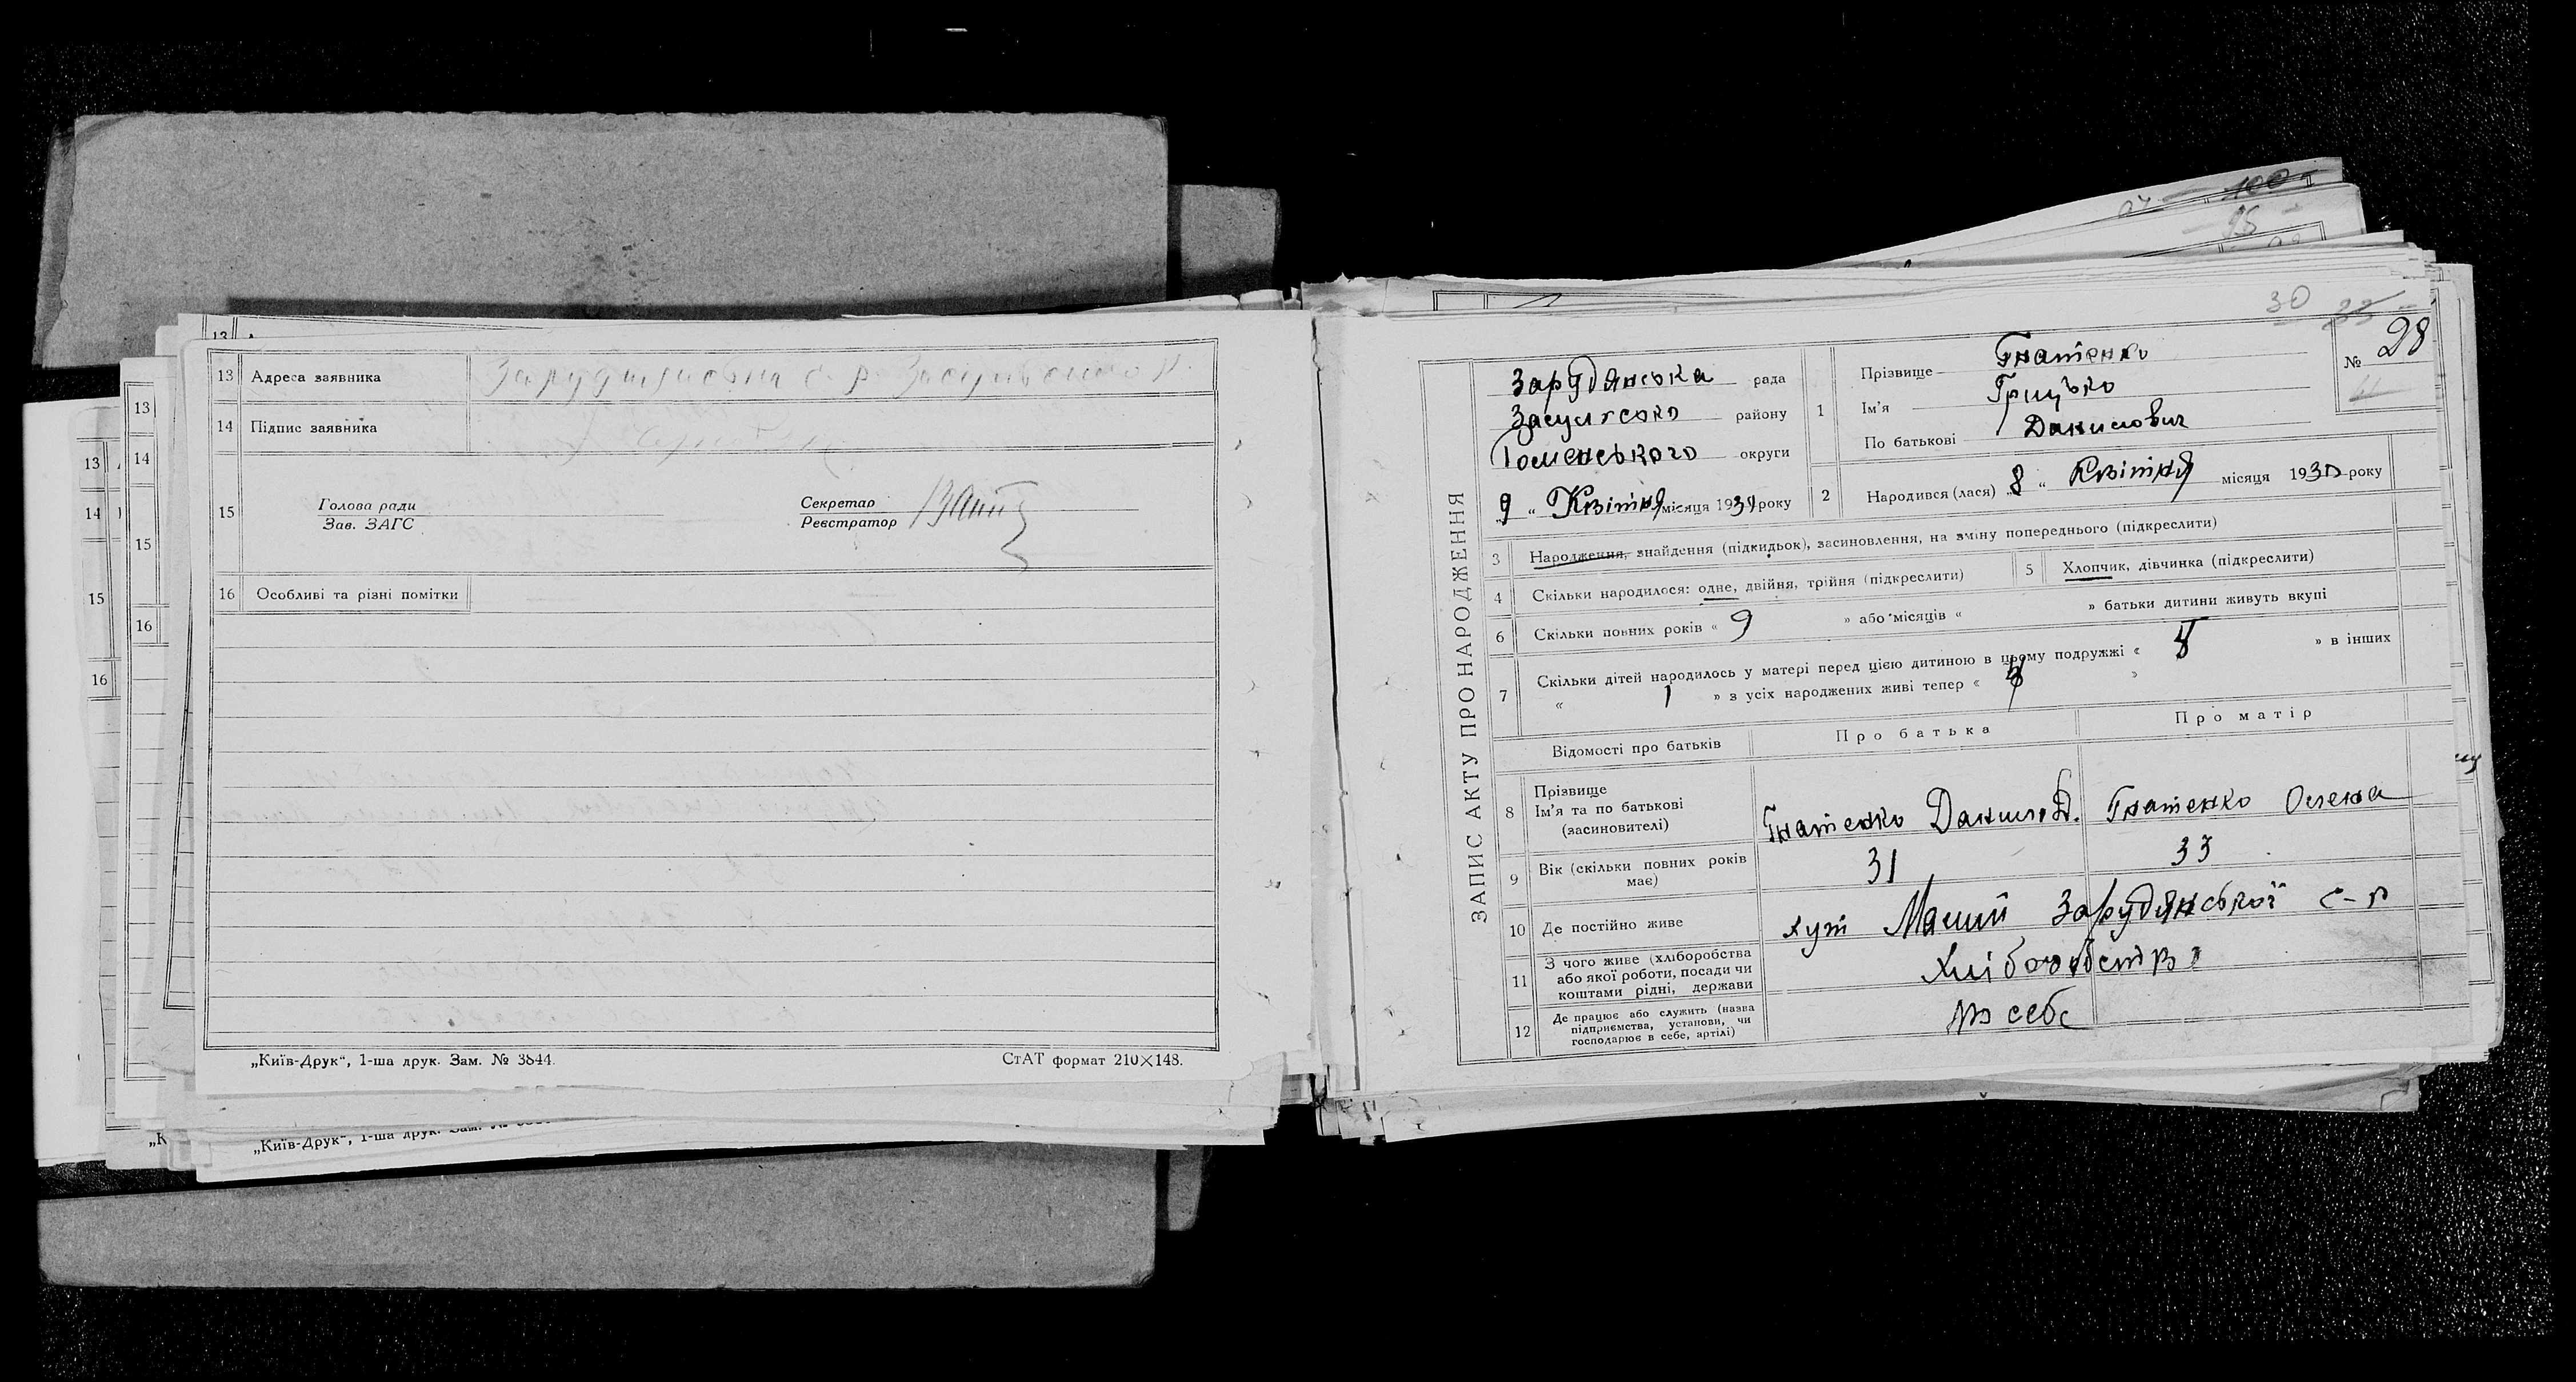 13 Адреса заявника
14 Підпис заявника
15 Голова ради
Зав. ЗАГС
Секретар
Реєстратор
16 Особливі та різні помітки
„Київ-Друк“, 1-ша друк. Зам. № 3844.
СтАТ формат 210×148.
13
14
15
16
13
14
15
16
„Київ-Друк“, 1-ша друк.
100
95
30 33
ЗАПИС АКТУ ПРО НАРОДЖЕННЯ
Зарудянська рада
району
округи
„9“ Квітня місяця 193 року
1 Прізвище Гнатенко
Ім'я Грицько
По батькові Данилович
№ 28
2 Народився (лася) „8“ Квітня місяця 1930 року
3 Народження, знайдення (підкидьок), засиновлення, на зміну попереднього (підкреслити)
4 Скільки народилося: одне, двійня, трійня (підкреслити)
5 Хлопчик, дівчинка (підкреслити)
6 Скільки повних років « 9 » або місяців « » батьки дитини живуть вкупі
7 Скільки дітей народилось у матері перед цією дитиною в цьому подружжі « » в інших
« 1 » з усіх народжених живі тепер « »
Відомості про батьків
Про батька
Про матір
8 Прізвище
Ім'я та по батькові
(засиновителі)
Гнатенко Данило Д.
Гнатенко Олена
9 Вік (скільки повних років
має)
31
33
10 Де постійно живе
хут Малий Зарудянської с-р
11 З чого живе (хліборобства
або якої роботи, посади чи
коштами рідні, держави
Хліборобство
12 Де працює або служить (назва
підприємства, установи, чи
господарює в себе, артілі)
себе